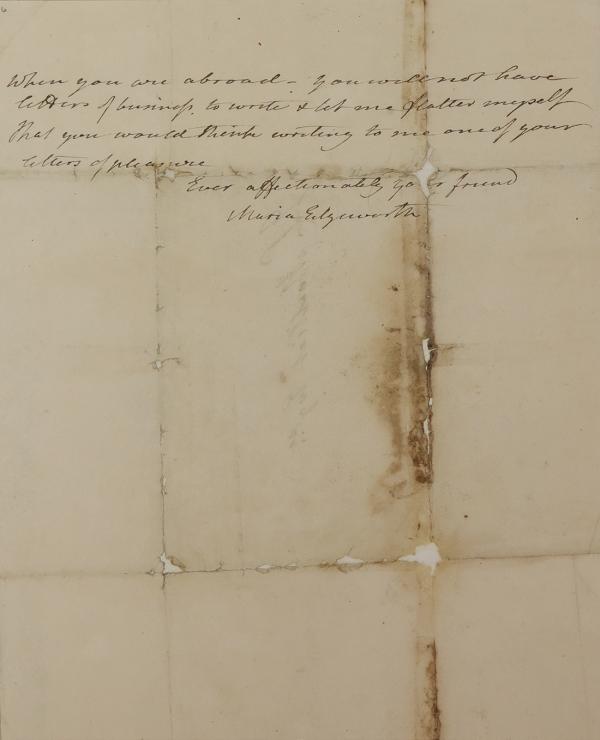 When you are abroad – you will not have
letters of business to write & let me flatter myself
that you would think writing to me one of your
letters of pleasure
Ever affectionately yo r friend
Maria Edgeworth